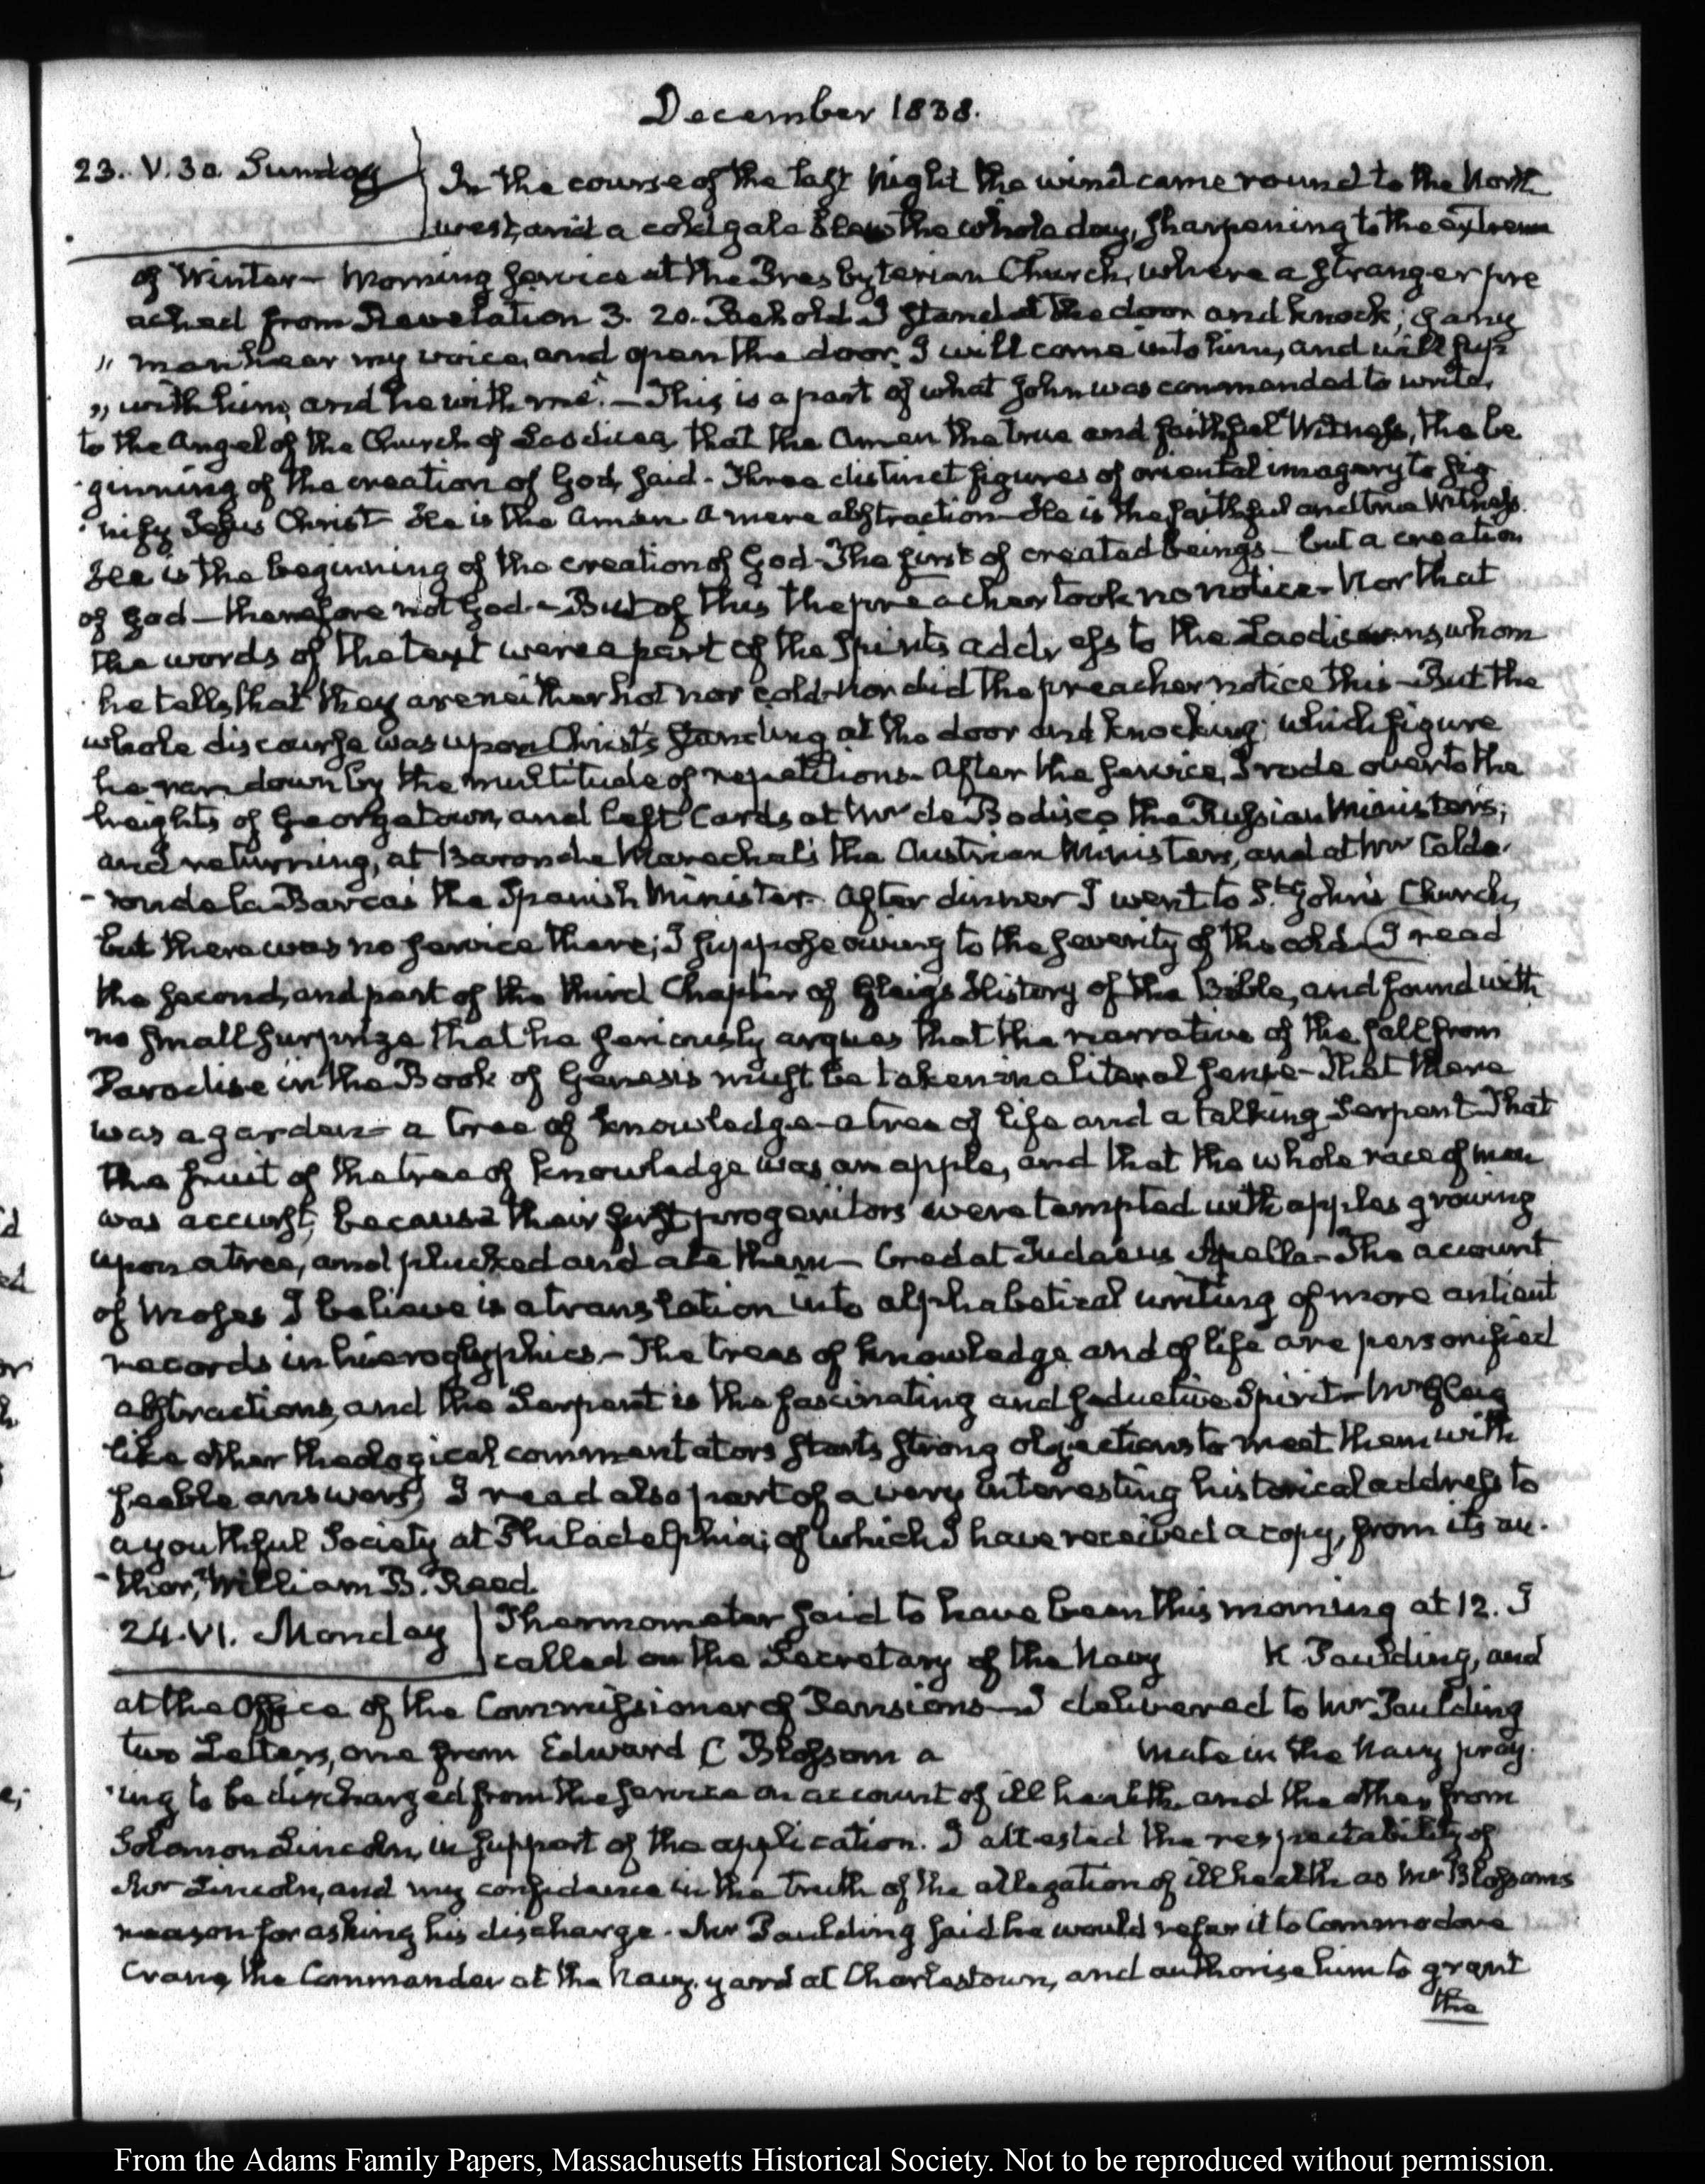 December 1838.
23. V.30. Sunday In the course of the last Night the wind came round to the North
west, and a cold gale blew the whole day, sharpening to the extreme
of Winter— Morning service at the Presbyterian Church, where a stranger pre
ached from Revelation 3. 20. Behold I stand at the door and knock; if any
" man hear my voice, and open the door, I will come in to him, and will sup
" with him, and he with me".— This is a part of what John was commanded to write,
to the Angel of the Church of Laodicea, that the Amen the true and faithful Witness, the be
ginning of the creation of God, said - Three distinct figures of oriental imagery to sig
nify Jesus Christ He is the Amen. A mere abstraction— He is the faithful and true Witness.
He is the beginning of the creation of God - The first of created beings— but a creation
of God— therefore not God.— But of this the preacher took no notice - Nor that
the words of the text were a part of the Spirits address to the Laodiceans, whom
he tells, that they are neither hot nor cold - Nor did the preacher notice this— But the
whole discourse was upon Christ's standing at the door and knocking; which figure
he ran down by the multitude of repetitions - After the service, I rode over to the
heights of Georgetown, and left Cards at Mr de Bodisco the Russian Minister's;
and returning, at Baron de Mareschal's the Austrian Ministers, and at Mr Calde-
-ron de la Barca's the Spanish Minister - After dinner I went to St. John's Church,
but there was no service there; I suppose owing to the severity of the cold (I read
the second, and part of the third Chapter of Gleig's History of the Bible, and found with
no small surprize that he seriously argues that the narrative of the fall from
Paradise in the Book of Genesis must be taken in a literal sense— That there
was a garden— a tree of knowledge— a tree of life and a talking Serpent— That
the fruit of the tree of knowledge was an apple, and that the whole race of man
was accurst, because their first progenitors were tempted with apples growing
upon a tree, and plucked and ate them— Credat Judaeus Apella— The account
of Moses I believe is a translation into alphabetical writing of more antient
records in hieroglyphics.— The trees of knowledge and of life are personified
abstractions, and the Serpent is the fascinating and seductive Spirit— Mr Gleig
like other theological commentators starts strong objections to meet them with
feeble answers) I read also part of a very interesting historical address to
a youthful Society at Philadelphia; of which I have received a copy, from its au-
-thor, William B. Reed.
24. VI. Monday Thermometer said to have been this morning at 12. I
called on the Secretary of the Navy K Paulding, and
at the Office of the Commissioner of Pensions— I delivered to Mr Paulding
two Letters, one from Edward C Blossom a mate in the Navy pray-
ing to be discharged from the service on account of ill health, and the other from
Solomon Lincoln, in support of the application. I attested the respectability of
Mr Lincoln, and my confidence in the truth of the allegation of ill health as Mr Blossoms
reason for asking his discharge. Mr Paulding said he would refer it to Commodore
Crane, the Commander at the Navy-yard at Charlestown, and authorise him to grant
the
From the Adams Family Papers, Massachusetts Historical Society. Not to be reproduced without permission.